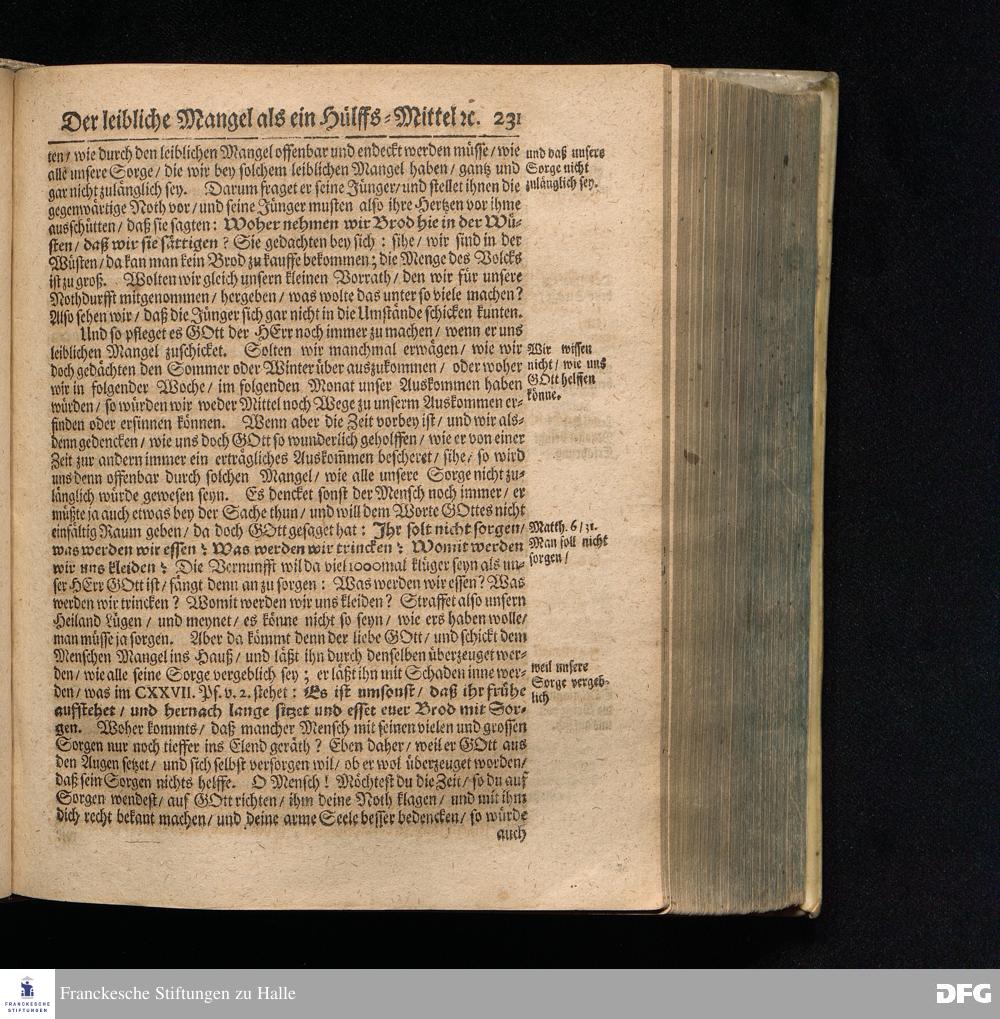 Der leibliche Mangel als ein Hülffs-Mittel ꝛc. 231
ten/ wie durch den leiblichen Mangel offenbar und endeckt werden müsse/ wie
alle unsere Sorge/ die wir bey solchem leiblichen Mangel haben/ gantz und
gar nicht zulänglich sey. Darum fraget er seine Jünger/ und stellet ihnen die
gegenwärtige Noth vor/ und seine Jünger musten also ihre Hertzen vor ihme
ausschütten/ daß sie sagten: Woher nehmen wir Brod hie in der Wü-
sten/ daß wir sie sättigen? Sie gedachten bey sich: sihe/ wir sind in der
Wüsten/ da kan man kein Brod zu kauffe bekommen; die Menge des Volcks
ist zu groß. Wolten wir gleich unsern kleinen Vorrath/ den wir für unsere
Nothdurfft mitgenommen/ hergeben/ was wolte das unter so viele machen?
Also sehen wir/ daß die Jünger sich gar nicht in die Umstände schicken kunten.
und daß unsere
Sorge nicht
zulänglich sey.
Und so pfleget es GOtt der HErr noch immer zu machen/ wenn er uns
leiblichen Mangel zuschicket. Solten wir manchmal erwägen/ wie wir
doch gedächten den Sommer oder Winter über auszukommen/ oder woher
wir in folgender Woche/ im folgenden Monat unser Auskommen haben
würden/ so würden wir weder Mittel noch Wege zu unserm Auskommen er-
finden oder ersinnen können. Wenn aber die Zeit vorbey ist/ und wir als-
denn gedencken/ wie uns doch GOtt so wunderlich geholffen/ wie er von einer
Zeit zur andern immer ein erträgliches Auskom̃en bescheret/ sihe/ so wird
uns denn offenbar durch solchen Mangel/ wie alle unsere Sorge nicht zu-
länglich würde gewesen seyn. Es dencket sonst der Mensch noch immer/ er
müßte ja auch etwas bey der Sache thun/ und will dem Worte GOttes nicht
einfältig Raum geben/ da doch GOtt gesaget hat: Ihr solt nicht sorgen/
was werden wir essen? Was werden wir trincken? Womit werden
wir uns kleiden? Die Vernunfft wil da viel 1000mal klüger seyn als un-
ser HErr GOtt ist/ fängt denn an zu sorgen: Was werden wir essen? Was
werden wir trincken? Womit werden wir uns kleiden? Straffet also unsern
Heiland Lügen/ und meynet/ es könne nicht so seyn/ wie ers haben wolle/
man müsse ja sorgen. Aber da kömmt denn der liebe GOtt/ und schickt dem
Menschen Mangel ins Hauß/ und läßt ihn durch denselben überzeuget wer-
den/ wie alle seine Sorge vergeblich sey; er läßt ihn mit Schaden inne wer-
den/ was im CXXVII. Ps. v. 2. stehet: Es ist umsonst/ daß ihr frühe
aufstehet/ und hernach lange sitzet und esset euer Brod mit Sor-
gen. Woher kommts/ daß mancher Mensch mit seinen vielen und grossen
Sorgen nur noch tieffer ins Elend geräth? Eben daher/ weil er GOtt aus
den Augen setzet/ und sich selbst versorgen wil/ ob er wol überzeuget worden/
daß sein Sorgen nichts helffe. O Mensch! Möchtest du die Zeit/ so du auf
Sorgen wendest/ auf GOtt richten/ ihm deine Noth klagen/ und mit ihm
dich recht bekant machen/ und deine arme Seele besser bedencken/ so würde
auch
Wir wissen
nicht/ wie uns
GOtt helffen
könne.
Matth. 6/31.
Man soll nicht
sorgen/
weil unsere
Sorge vergeb-
lich
FRANCKESCHE
STIFTUNGEN
Franckesche Stiftungen zu Halle
DFG